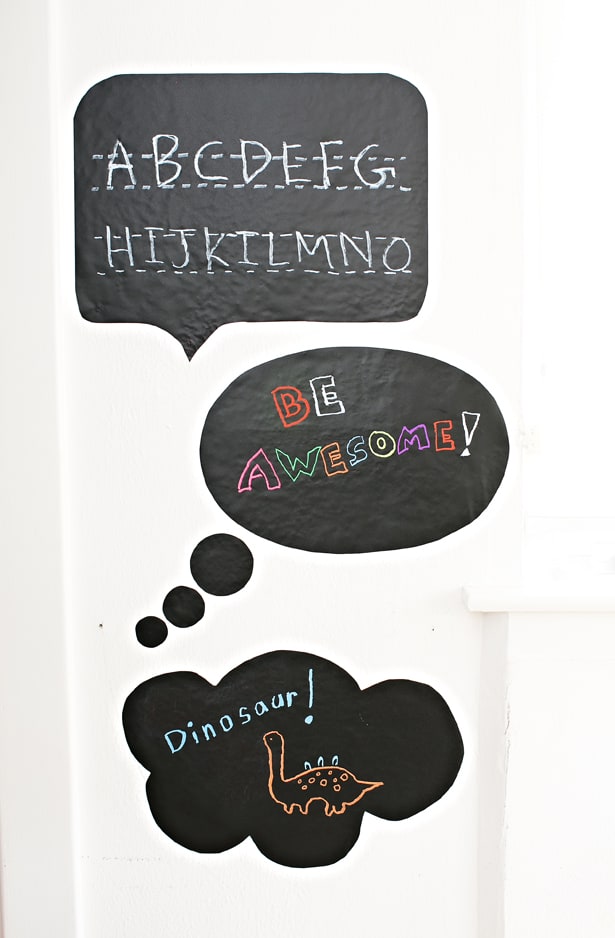 ABCDEFG
HIJKILMNO
BE
AWESOME!
Dinosaur!